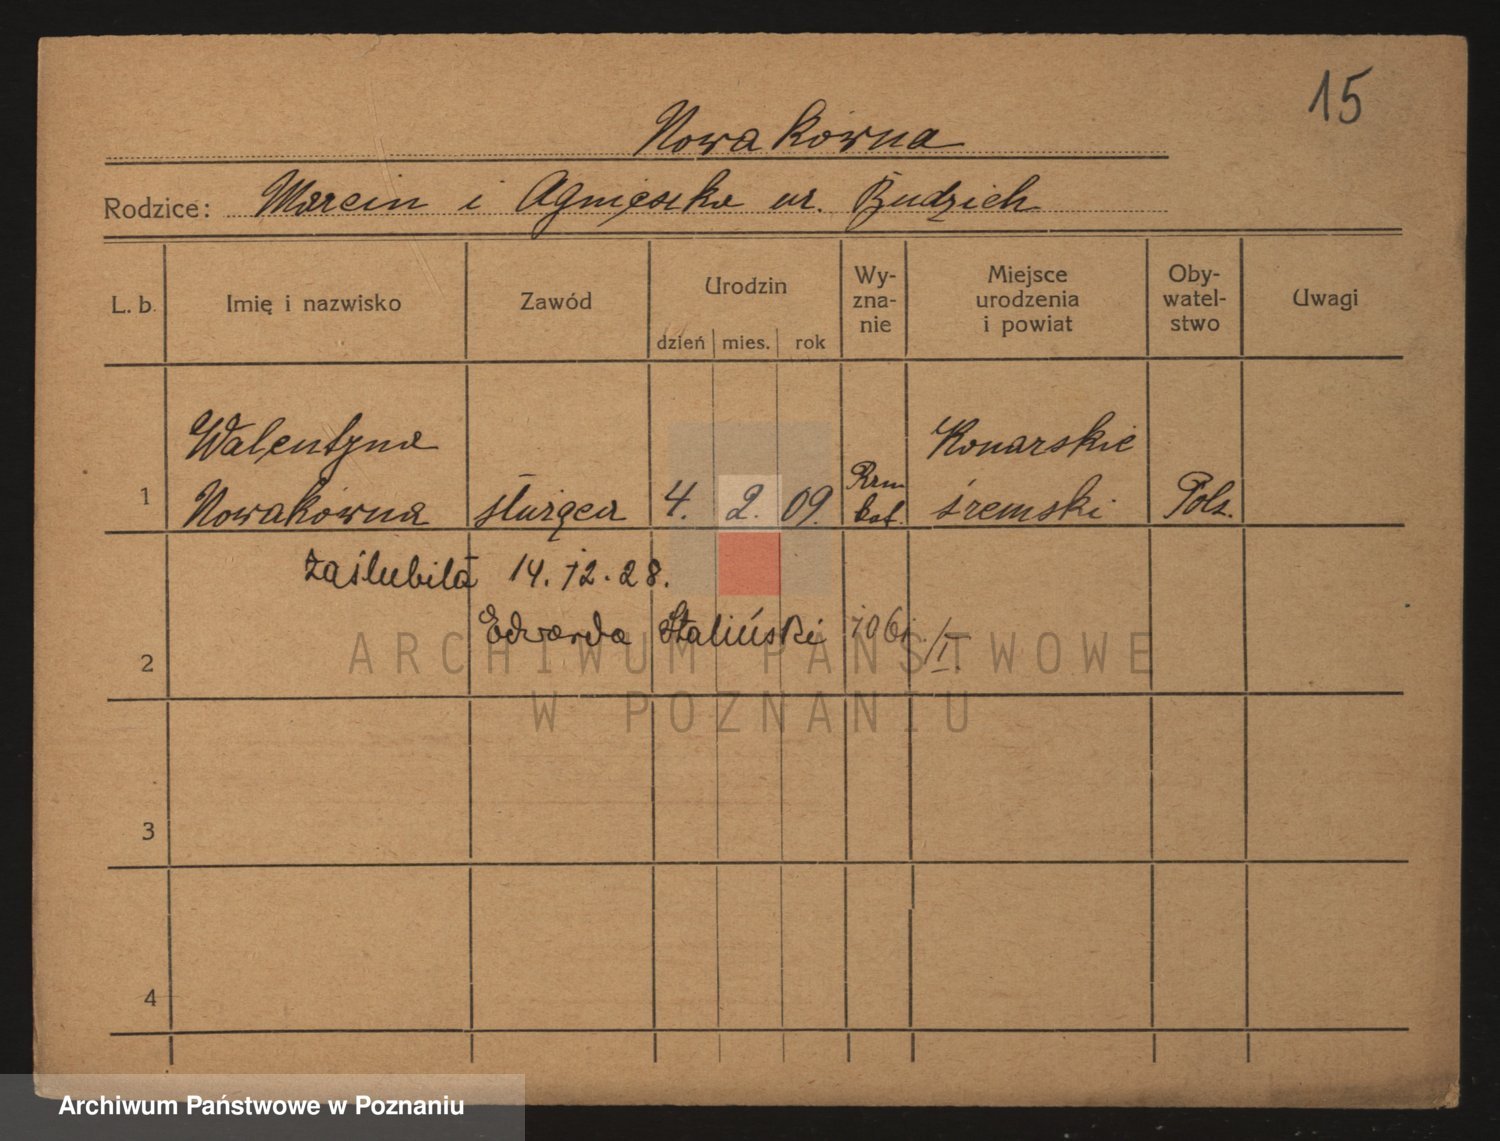 15
Nowakówna
Rodzice: Marcin i Agnieszka ur. Budzich
L. b. Imię i nazwisko Zawód Urodzin dzień mies. rok Wy-zna-nie Miejsce urodzenia i powiat Oby-watel-stwo Uwagi
Walentyna Konarskie
1 Nowakówna służąca 4. 2. 09. Rzm kat. śremski Pols.
zaślubiła 14.12.28.
Edwarda Staliński
2
ARCHIWUM PAŃSTWOWE
W POZNANIU
3
4
Archiwum Państwowe w Poznaniu